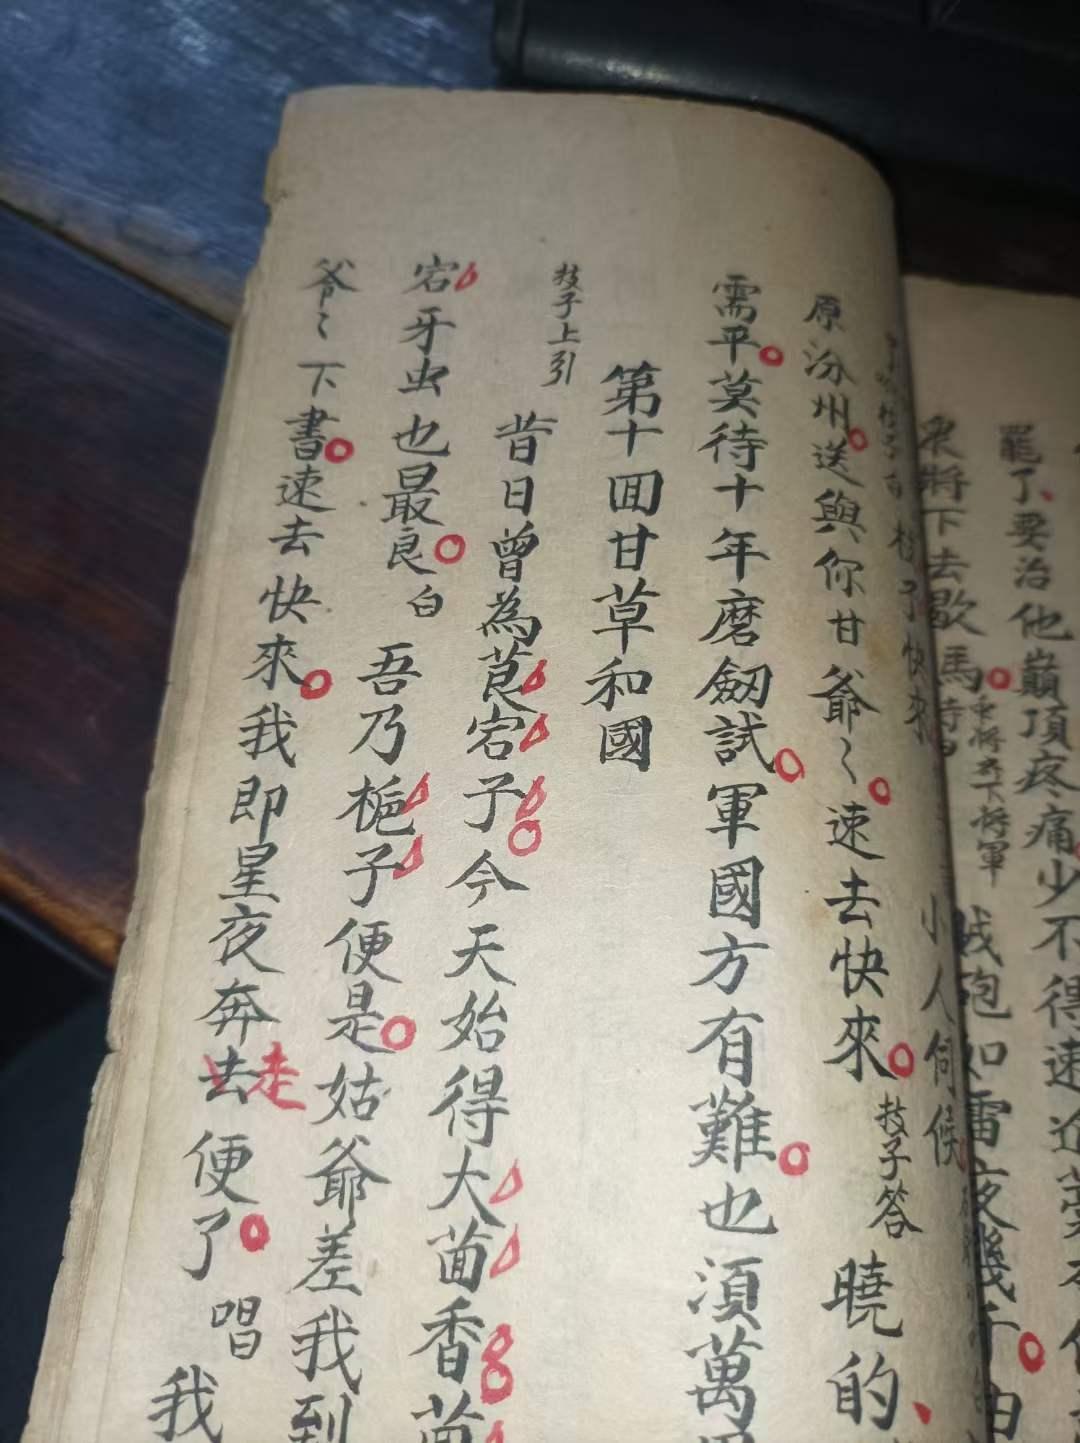 罷了要治他巔頂疼痛少不得速
衆將下去歇馬
衆將不下將軍
賊砲如雷夜幾千
小人伺候
枝子快來
原汾州送與你甘爺〻速去快來
枝子答
曉的
需平莫待十年磨劒試軍國方有難也湏萬
第十囬甘草和國
枝子上引
昔日曾為莨宕子今天始得大茴香茴
宕牙虫也最良
白
吾乃梔子便是姑爺差我到
爺〻下書速去快來我即星夜奔去便了
走
唱
我